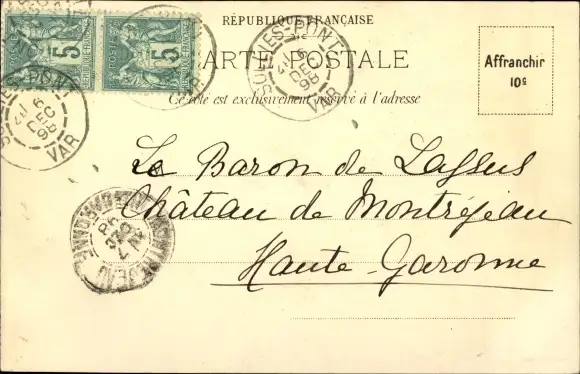 RÉPUBLIQUE FRANÇAISE
CARTE POSTALE
Ce côté est exclusivement réservé à l'adresse
Affranchir
10c
5
5
LES-PONT
VAR
LES-PONT
9
DEC
98
VAR
Le Baron de Lassus
Château de Montréjeau
Haute-Garonne
GARONNE